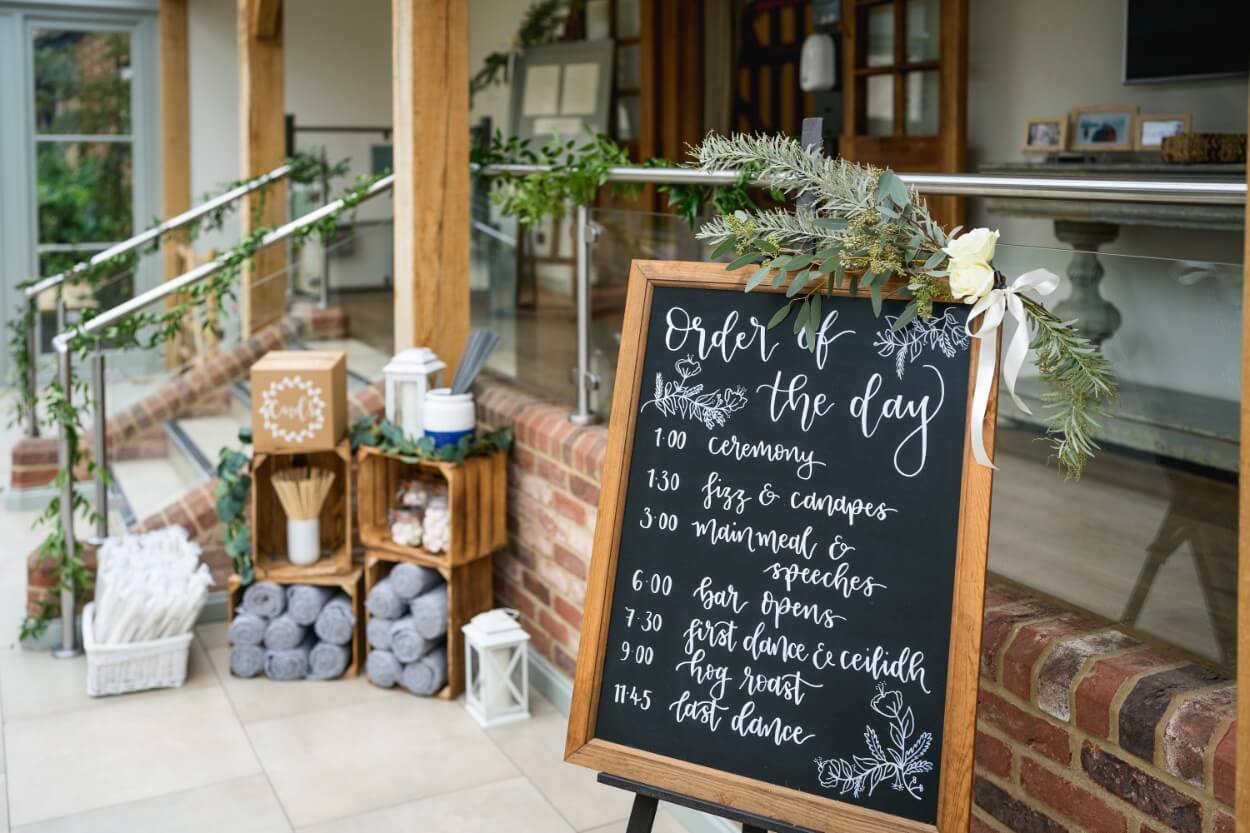 Order of
the day
1:00 ceremony
1:30 fizz & canapes
3:00 Main meal &
speeches
6:00 bar opens
7:30 first dance & ceilidh
9:00 hog roast
11:45 last dance
Cards